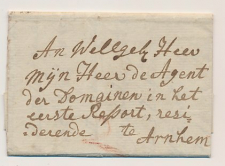 An Wellgeb Heer
mijn Heer de Agent
der Domainen in het
eerste Ressort, resi
:derende te
Arnhem